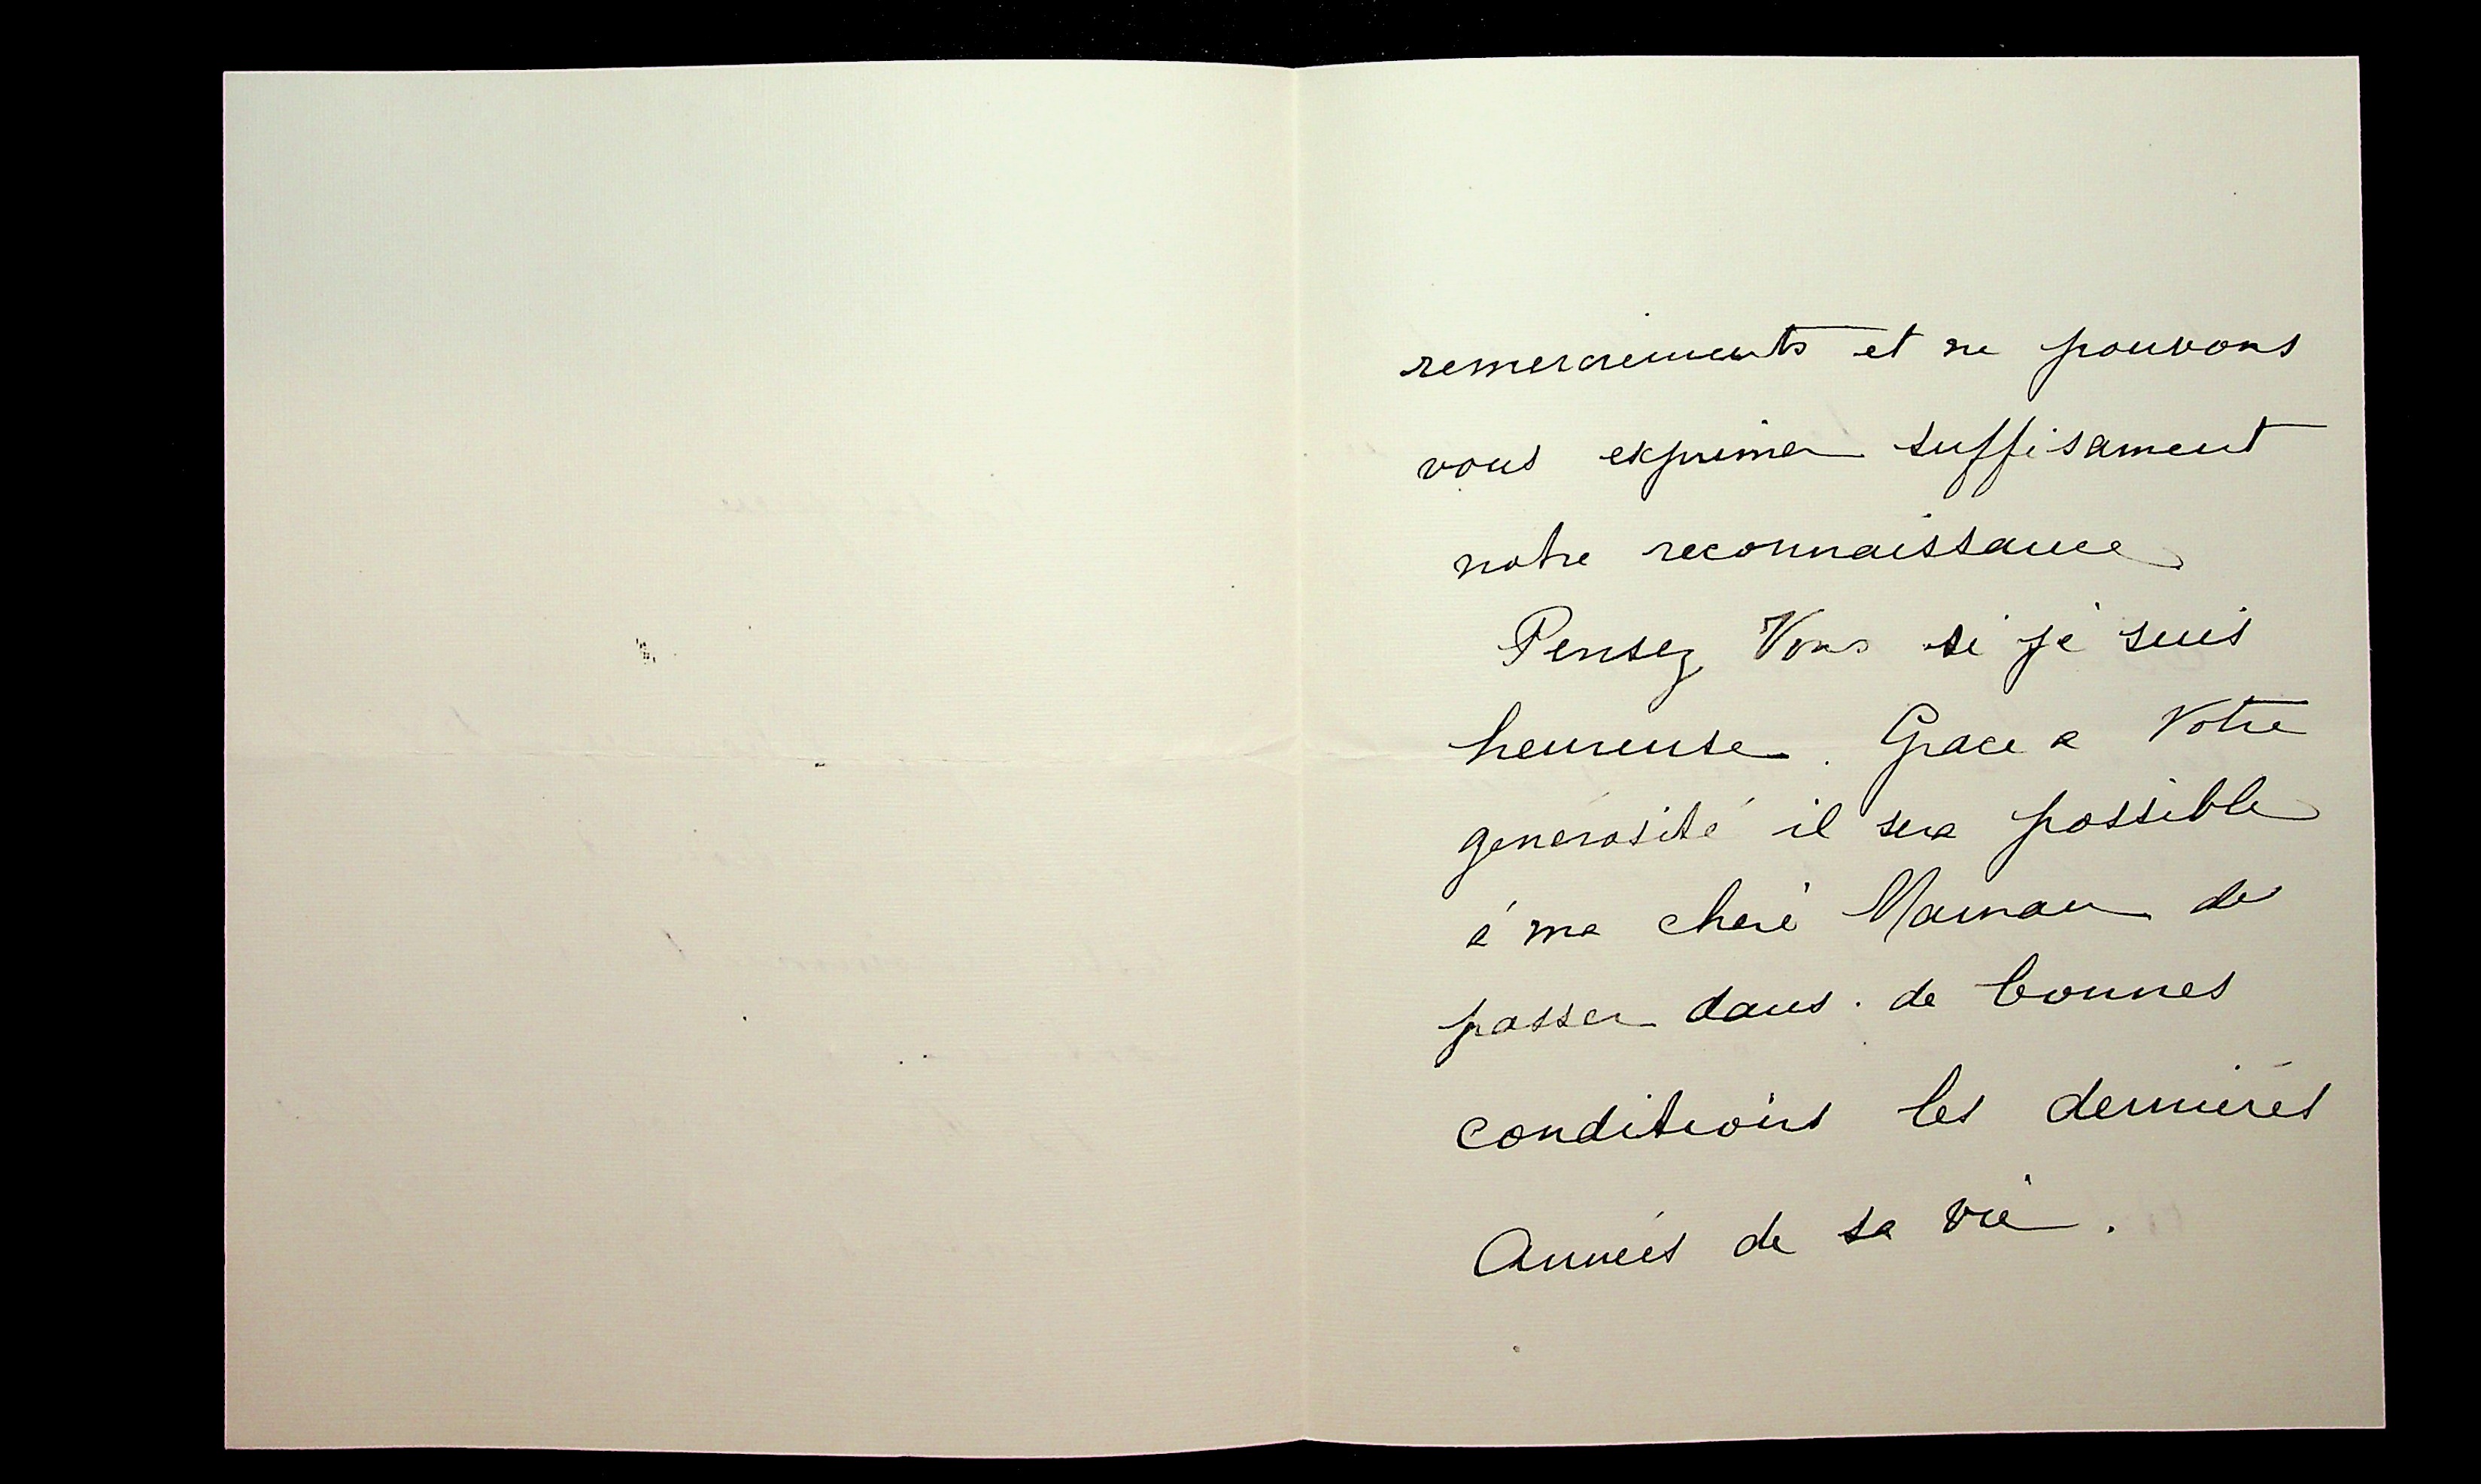 remerciements et ne pouvons
vous exprimer suffisament
notre reconnaissance
Pensez Vous si je suis
heureuse. Grace a Votre
generosité il sera possible
à ma chere Maman de
passer dans de bonnes
conditions les dernieres
Années de sa vie.